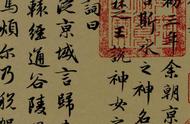 初三年余朝京
斯水之神名
王說神女之
詞曰
從京域言歸東
轅經通谷陵
馬煩尔乃税駕